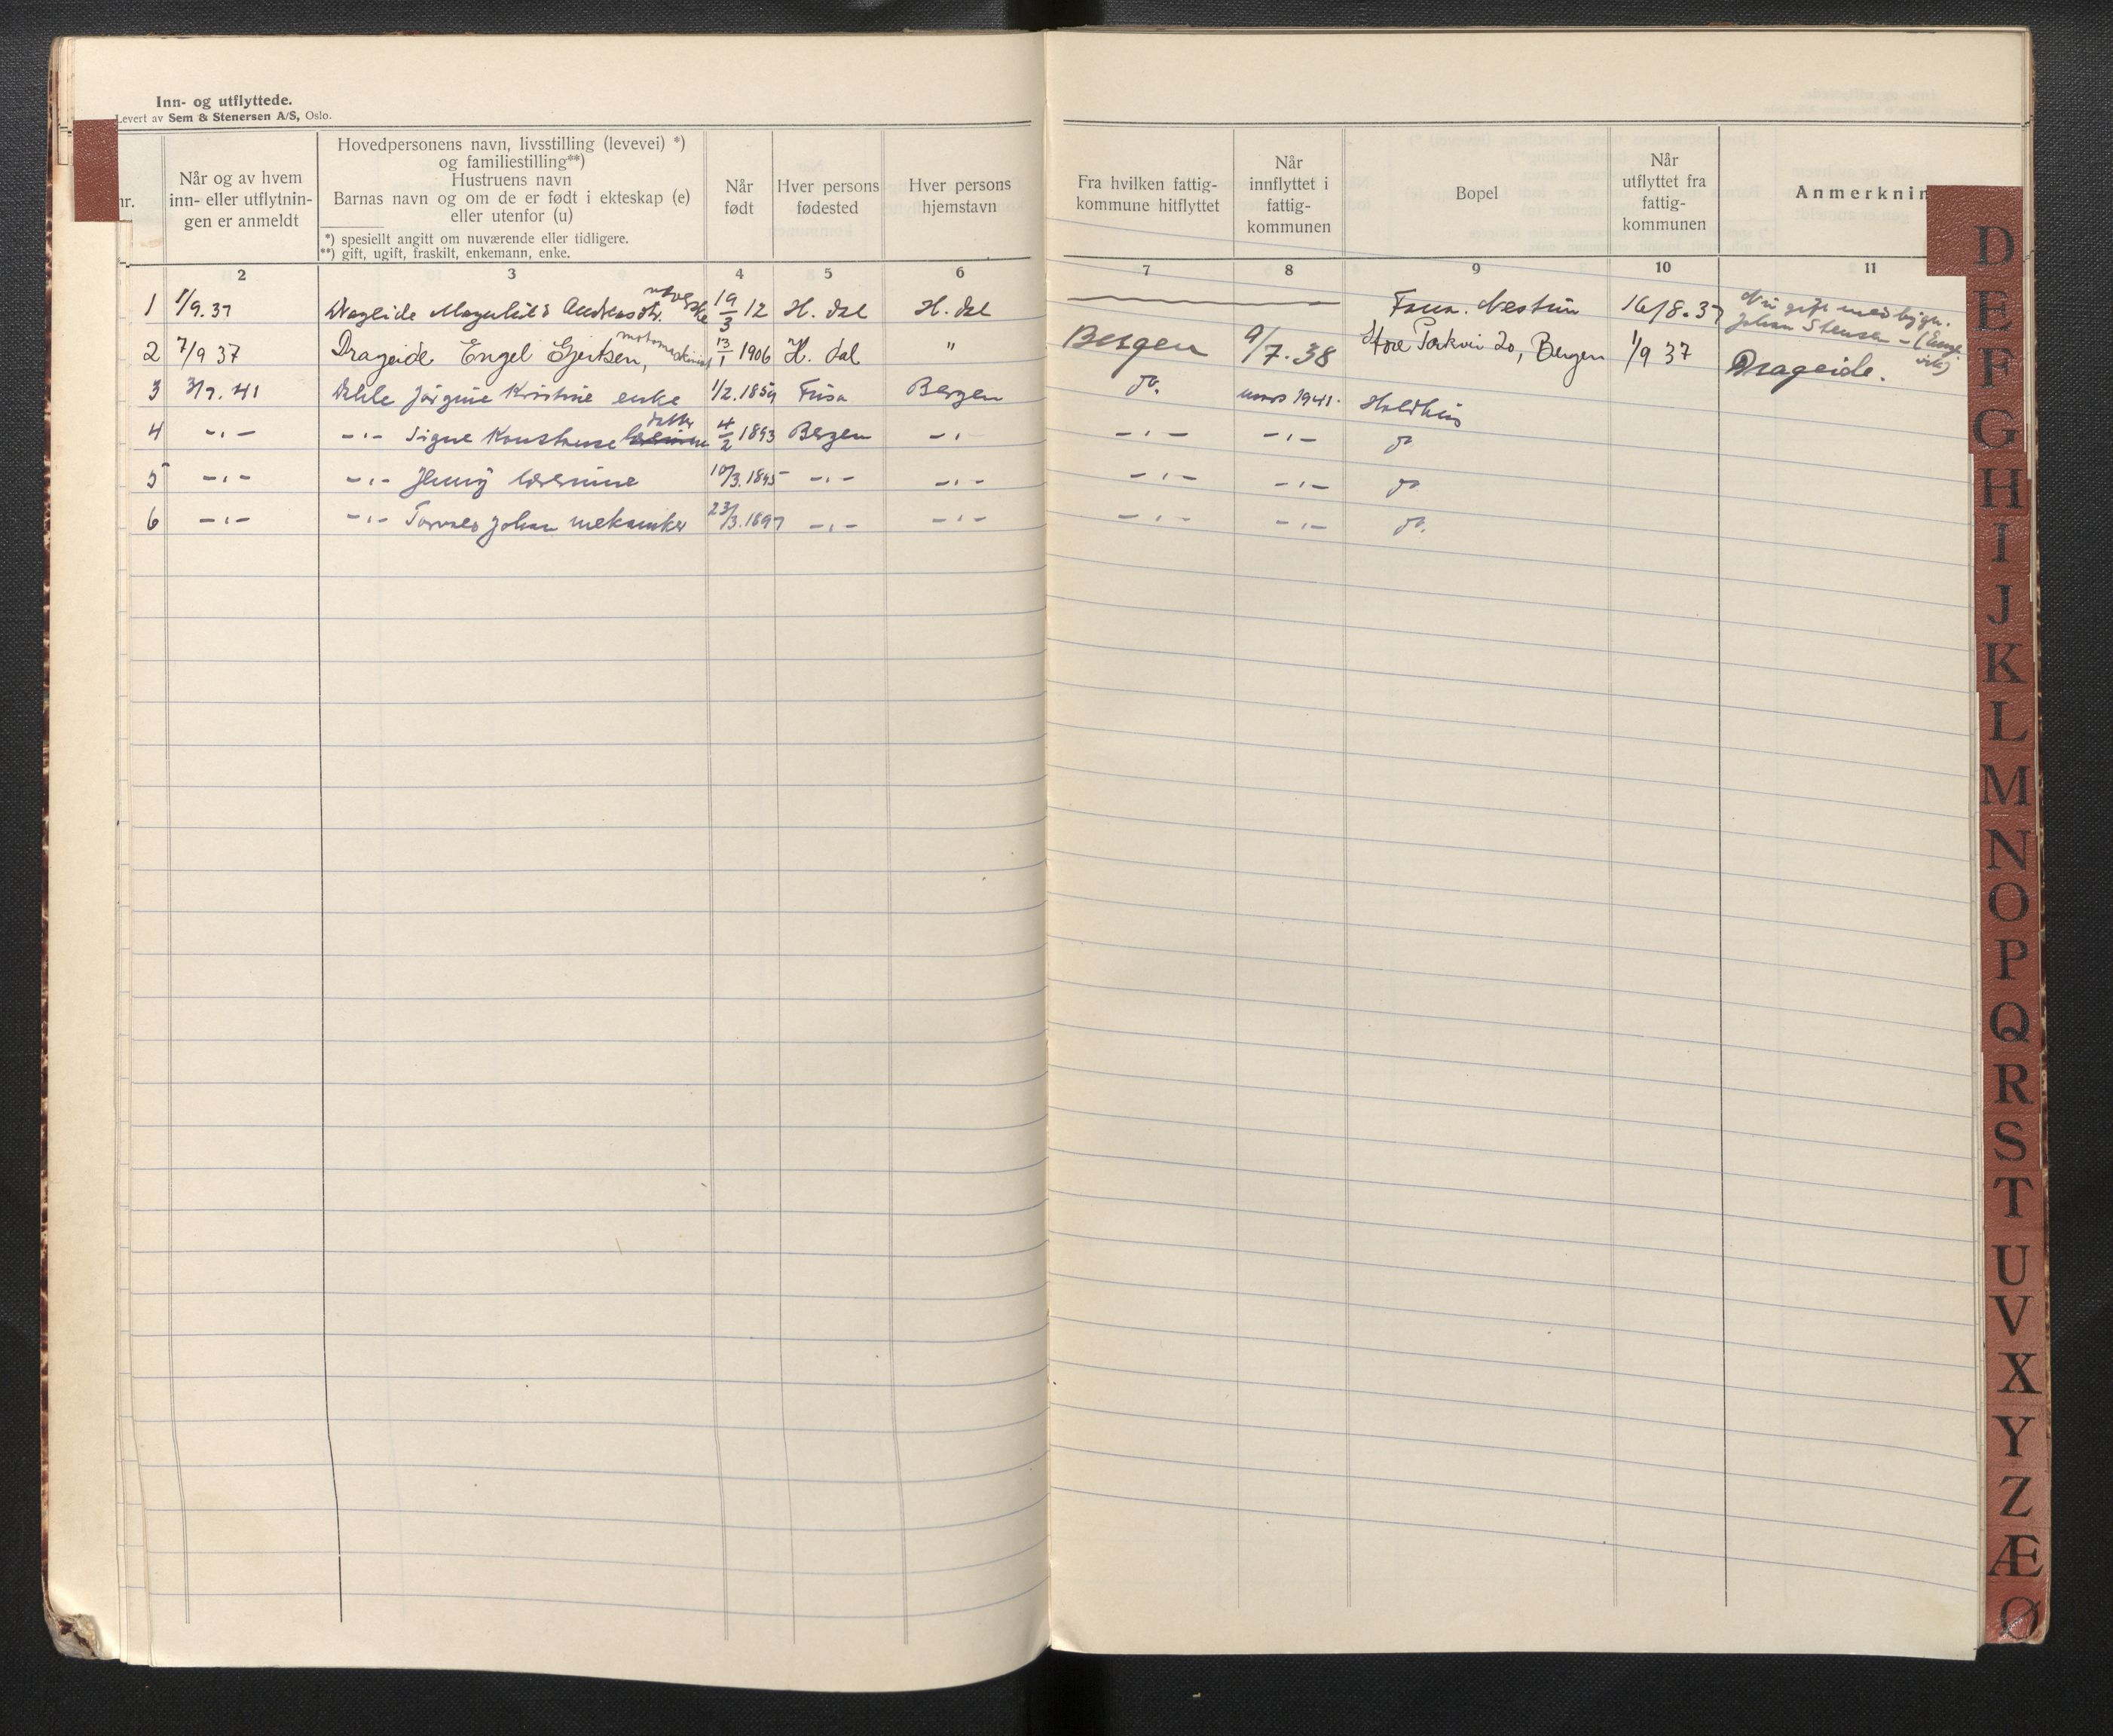 Inn- og utflyttede.
Levert av Sem & Stenersen A/S, Oslo.
nr.
Når og av hvem
inn- eller utflytnin-
gen er anmeldt
Hovedpersonens navn, livsstilling (levevei) *)
og familiestilling**)
Hustruens navn
Barnas navn og om de er født i ekteskap (e)
eller utenfor (u)
*) spesiellt angitt om nuværende eller tidligere.
**) gift, ugift, fraskilt, enkemann, enke.
Når
født
Hver persons
fødested
Hver persons
hjemstavn
Fra hvilken fattig-
kommune hitflyttet
Når
innflyttet i
fattig-
kommunen
Bopel
Når
utflyttet fra
fattig-
kommunen
Anmerknin
2 3 4 5 6 7 8 9 10 11
1 1/9.37 Drageide Magnhild Andreasdtr. 19/3 12 H. dal H. dal Fana. Nestun 16/8.37 Nu gift med bygn.
Johan Stensen -
2 7/9 37 Drageide Engel Gjertsen, 13/1 1906 H. dal " Bergen 9/7.38 Store Parkvei 20, Bergen 1/9 37 Drageide.
3 3/9.41 Dahle Jørgine Kristine enke 1/2.1859 Fusa Bergen do. mars 1941. Holdhus
datter
4 -"- -"- Signe Konstanse 4/2 1893 Bergen -"- -"- -"- do
5 -"- -"- Jenny lærerinne 10/3.1895 -"- -"- -"- -"- do
6 -"- -"- Torvald Johan mekaniker 23/3.1897 -"- -"- -"- -"- do.
D
E
F
G
H
I
J
K
L
M
N
O
P
Q
R
S
T
U
V
X
Y
Z
Æ
Ø